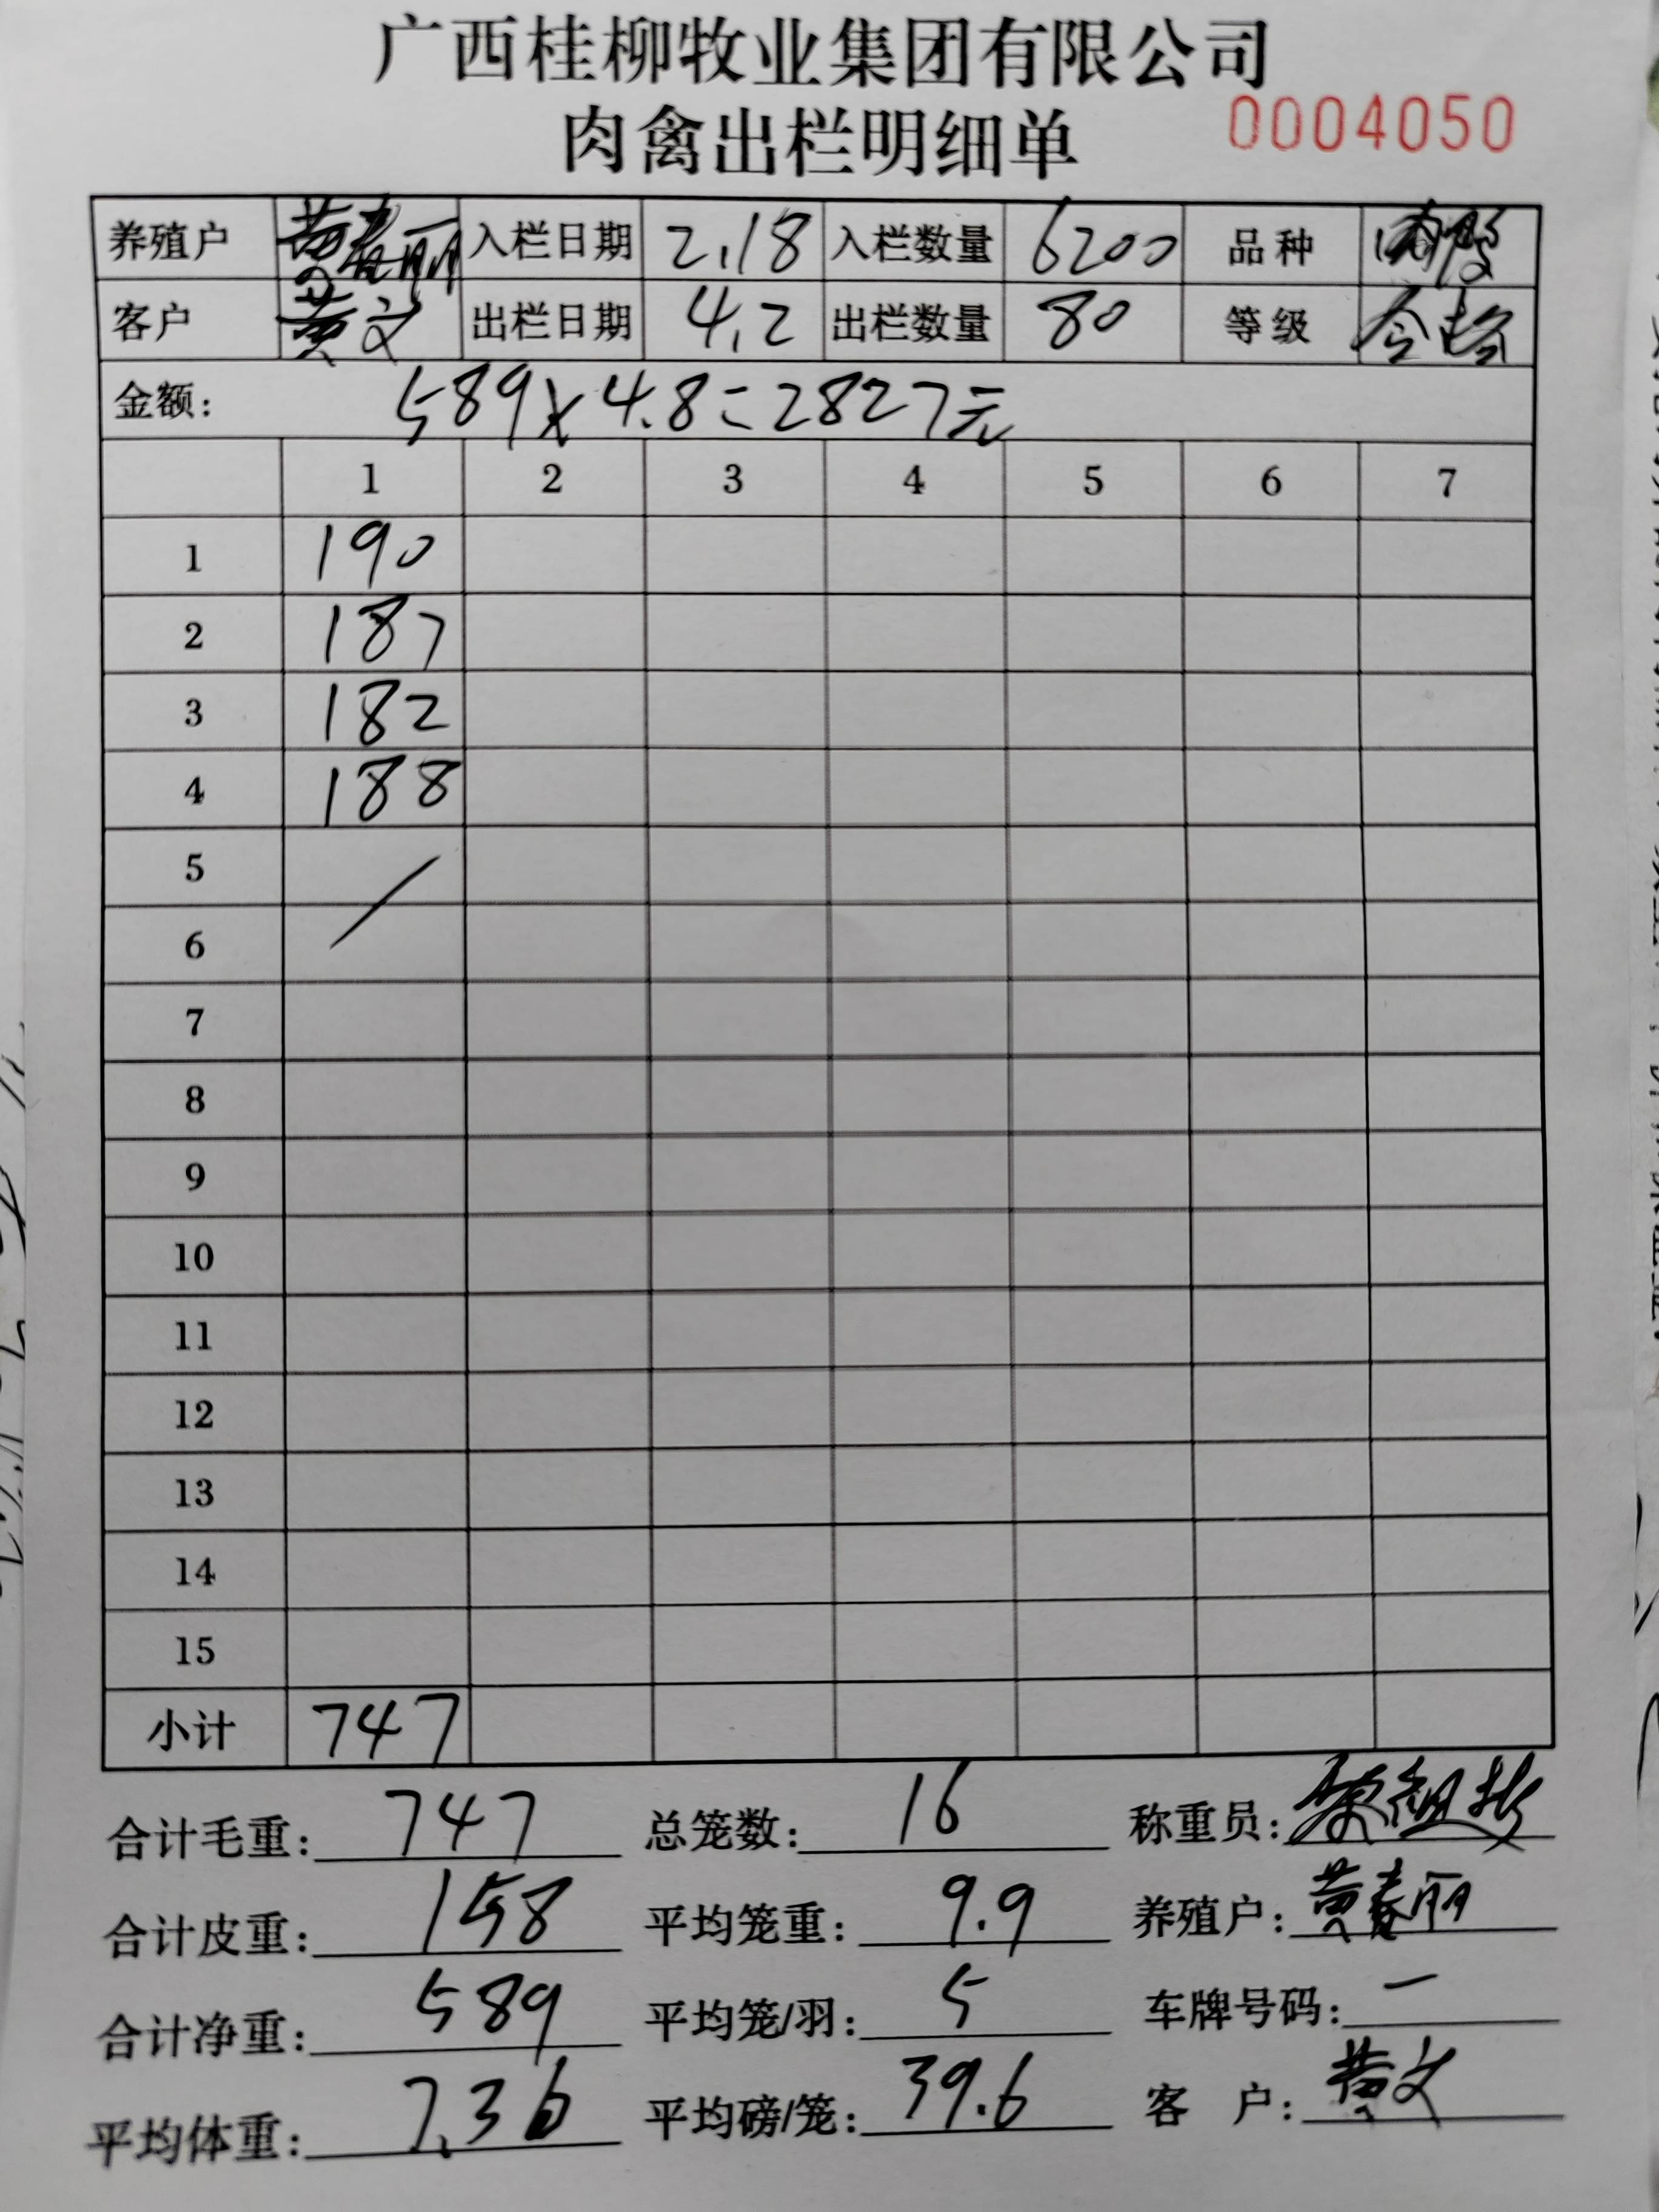 广西桂柳牧业集团有限公司
肉禽出栏明细单 0004050
养殖户 黄春丽 入栏日期 2.18 入栏数量 6200 品种
客户 黄文 出栏日期 4.2 出栏数量 80 等级 合格
金额: 589×4.8=2827元
1 2 3 4 5 6 7
1 190
2 187
3 182
4 188
5
6
7
8
9
10
11
12
13
14
15
小计 747
合计毛重: 747 总笼数: 16 称重员:
合计皮重: 158 平均笼重: 9.9 养殖户: 黄春丽
合计净重: 589 平均笼/羽: 5 车牌号码: 一
平均体重: 7.36 平均磅/笼: 39.6 客户: 黄文